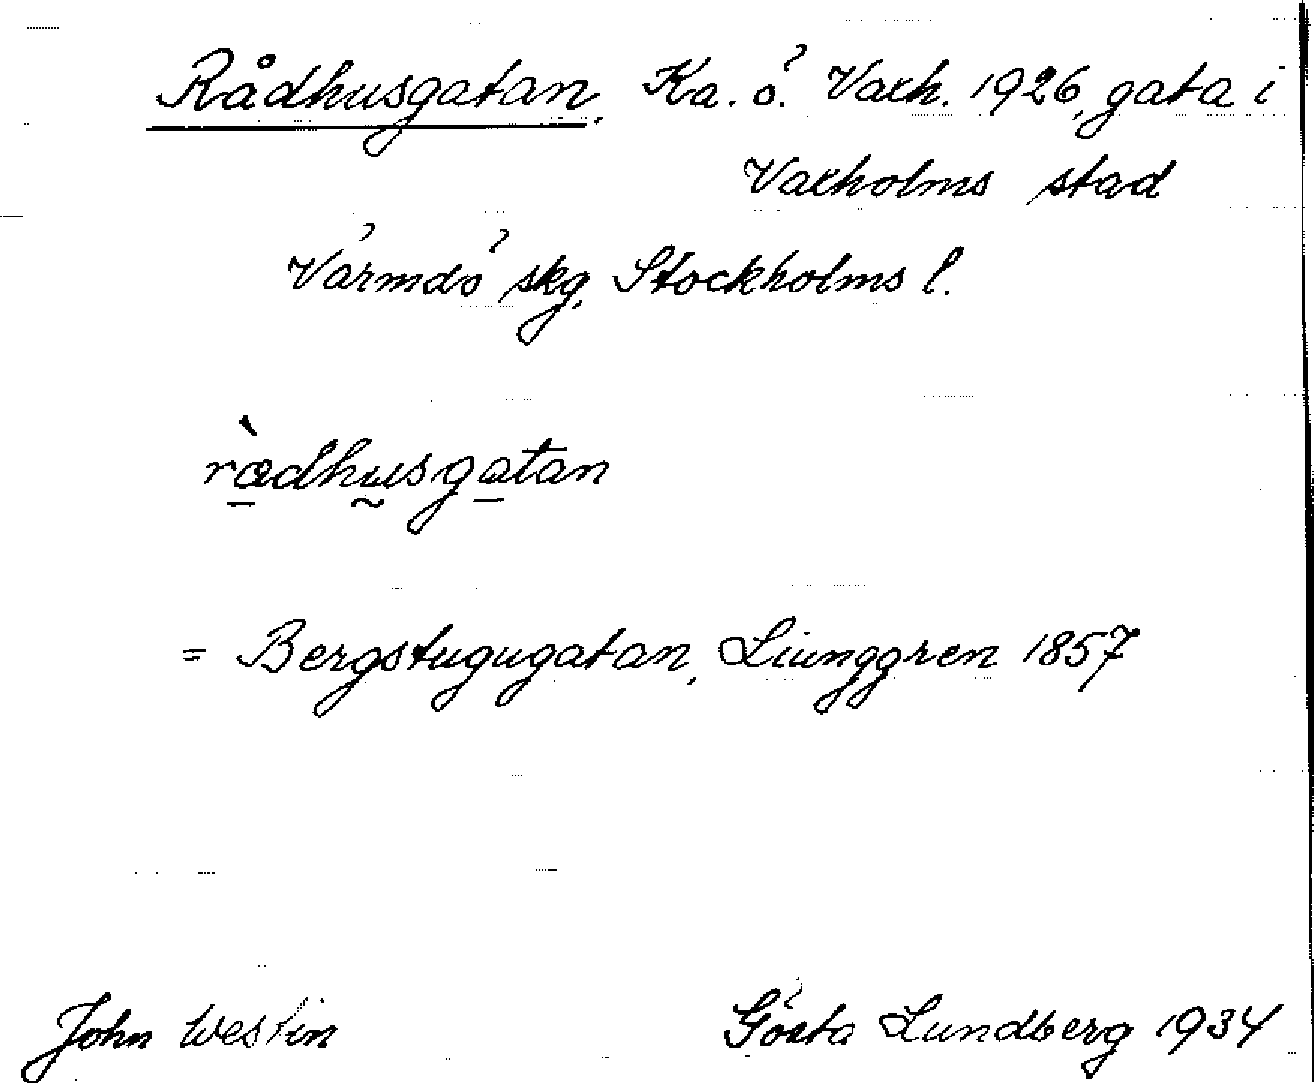 Rådhusgatan, Ka. ö. Vaxh. 1926, gata i
Vaxholms stad
Värmdö skg, Stockholms l.
ràdhusgatan
= Bergstugugatan, Liunggren 1857
John Westin Gösta Lundberg 1934